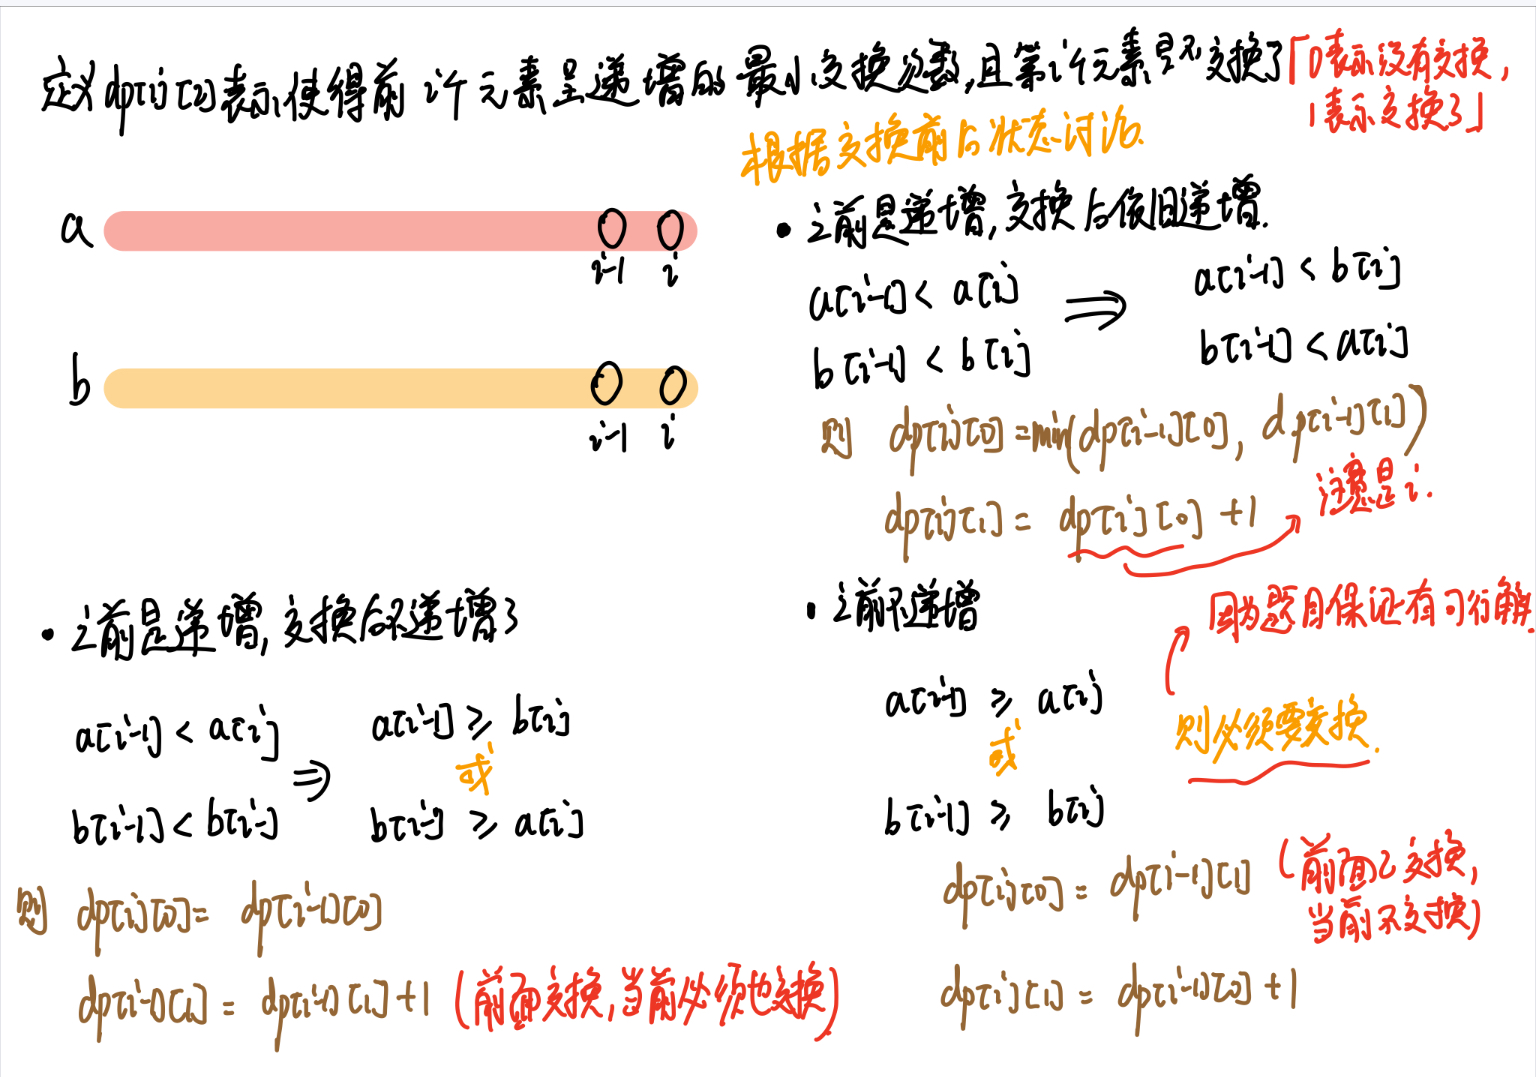 定义dp[i][2]表示使得前i个元素呈递增的最小交换次数,且第i个元素是否交换了「0表示没有交换,
1表示交换了」
根据交换前后状态讨论.
a
i-1 i
b
i-1 i
• 之前是递增,交换后依旧递增.
a[i-1] < a[i] ⇒ a[i-1] < b[i]
b[i-1] < b[i] b[i-1] < a[i]
则 dp[i][0] = min(dp[i-1][0], dp[i-1][1])
dp[i][1] = dp[i][0] + 1
注意是i.
• 之前是递增,交换后不递增了
a[i-1] < a[i] ⇒ a[i-1] ≥ b[i]
或
b[i-1] < b[i] b[i-1] ≥ a[i]
则 dp[i][0] = dp[i-1][0]
dp[i-1][1] = dp[i-1][1] + 1 (前面交换,当前必须也交换)
• 之前不递增
因为题目保证有可行解.
a[i-1] ≥ a[i]
或
则必须要交换.
b[i-1] ≥ b[i]
dp[i][0] = dp[i-1][1] (前面已交换,
当前不交换)
dp[i][1] = dp[i-1][0] + 1